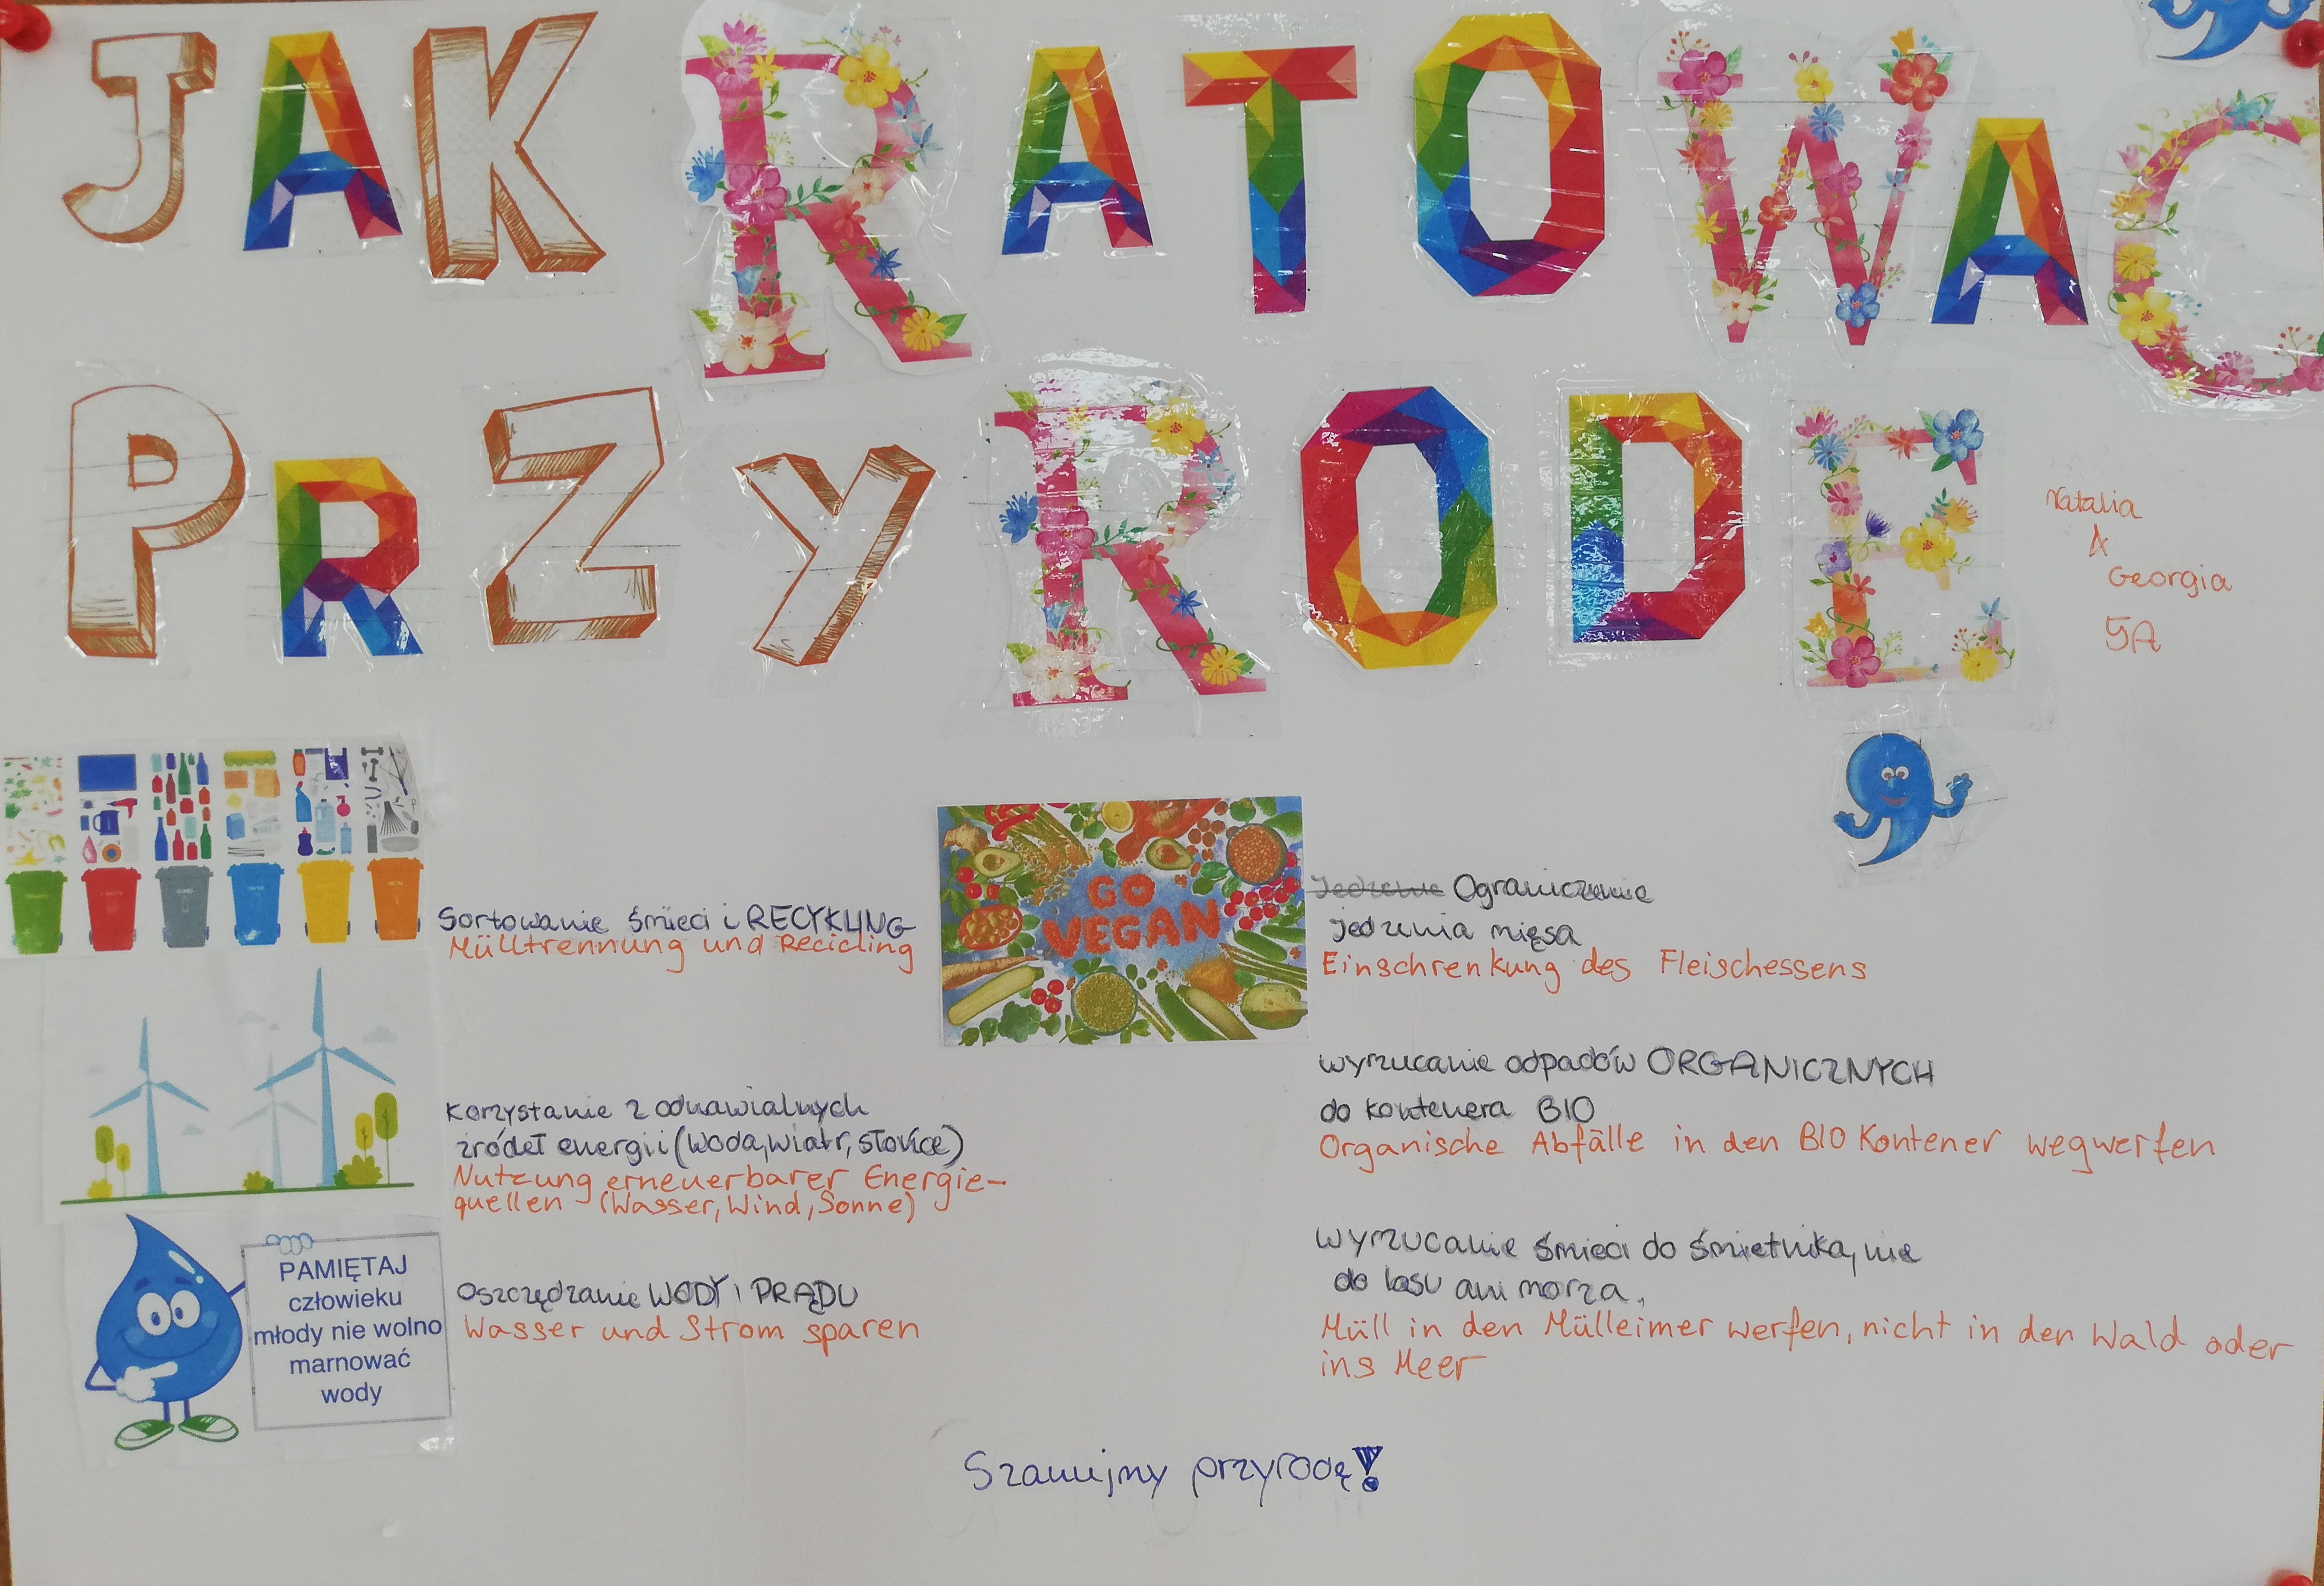 JAK RATOWAC
PRZYRODE
Natalia
&
Georgia
5A
Sortowanie śmieci i RECYKLING
Mülltrennung und Recicling
GO
VEGAN
Jedzenie Ograniczenie
jedzenia mięsa
Einschrenkung des Fleischessens
Korzystanie z odnawialnych
źródeł energii (woda, wiatr, słońce)
Nutzung erneuerbarer Energie-
quellen (Wasser, Wind, Sonne)
wyrzucanie odpadów ORGANICZNYCH
do kontenera BIO
Organische Abfälle in den BIO Kontener wegwerfen
PAMIĘTAJ
człowieku
młody nie wolno
marnować
wody
Oszczędzanie WODY i PRĄDU
Wasser und Strom sparen
Wyrzucanie śmieci do śmietnika, nie
do lasu ani morza.
Müll in den Mülleimer werfen, nicht in den Wald oder
ins Meer
Szanujmy przyrodę!